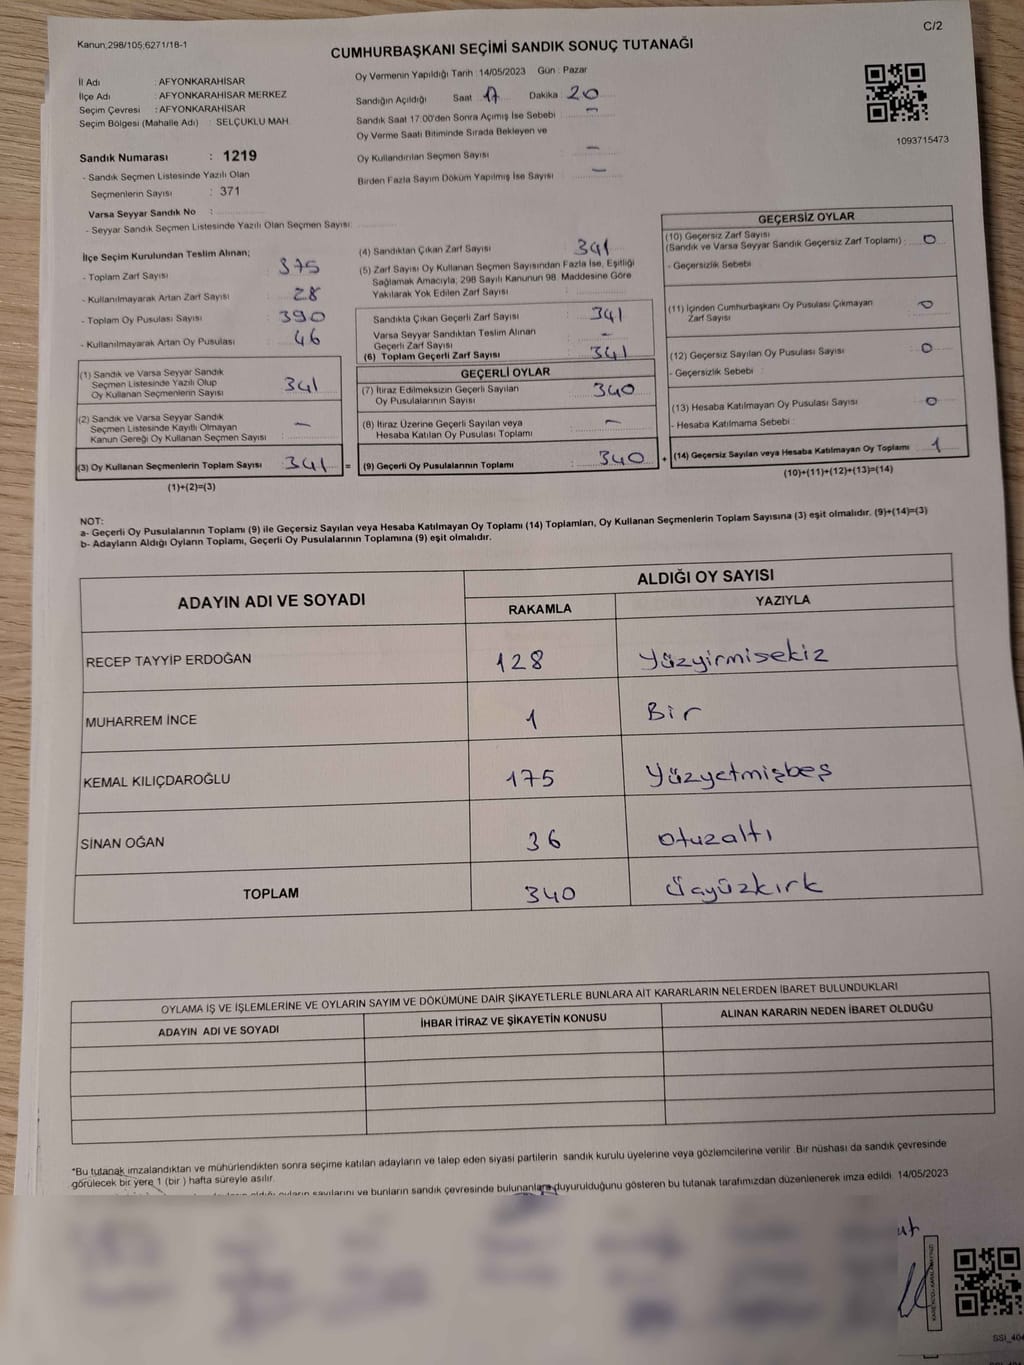 Kanun;298/105;6271/18-1
C/2
CUMHURBAŞKANI SEÇİMİ SANDIK SONUÇ TUTANAĞI
İl Adı : AFYONKARAHİSAR
İlçe Adı : AFYONKARAHİSAR MERKEZ
Seçim Çevresi : AFYONKARAHİSAR
Seçim Bölgesi (Mahalle Adı) : SELÇUKLU MAH.
Sandık Numarası : 1219
- Sandık Seçmen Listesinde Yazılı Olan
Seçmenlerin Sayısı : 371
Varsa Seyyar Sandık No :
- Seyyar Sandık Seçmen Listesinde Yazılı Olan Seçmen Sayısı:
Oy Vermenin Yapıldığı Tarih : 14/05/2023 Gün : Pazar
Sandığın Açıldığı Saat : 17 Dakika : 20
Sandık Saat 17:00'den Sonra Açımış İse Sebebi : -
Oy Verme Saati Bitiminde Sırada Bekleyen ve
Oy Kullandırılan Seçmen Sayısı : -
Birden Fazla Sayım Döküm Yapılmış İse Sayısı : -
1093715473
İlçe Seçim Kurulundan Teslim Alınan;
- Toplam Zarf Sayısı : 375
- Kullanılmayarak Artan Zarf Sayısı : 28
- Toplam Oy Pusulası Sayısı : 390
- Kullanılmayarak Artan Oy Pusulası : 46
(1) Sandık ve Varsa Seyyar Sandık
Seçmen Listesinde Yazılı Olup
Oy Kullanan Seçmenlerin Sayısı : 341
(2) Sandık ve Varsa Seyyar Sandık
Seçmen Listesinde Kayıtlı Olmayan
Kanun Gereği Oy Kullanan Seçmen Sayısı : -
(3) Oy Kullanan Seçmenlerin Toplam Sayısı : 341 =
(1)+(2)=(3)
(4) Sandıktan Çıkan Zarf Sayısı : 341
(5) Zarf Sayısı Oy Kullanan Seçmen Sayısından Fazla İse, Eşitliği
Sağlamak Amacıyla; 298 Sayılı Kanunun 98. Maddesine Göre
Yakılarak Yok Edilen Zarf Sayısı :
Sandıkta Çıkan Geçerli Zarf Sayısı : 341
Varsa Seyyar Sandıktan Teslim Alınan
Geçerli Zarf Sayısı : -
(6) Toplam Geçerli Zarf Sayısı : 341
GEÇERLİ OYLAR
(7) İtiraz Edilmeksizin Geçerli Sayılan
Oy Pusulalarının Sayısı : 340
(8) İtiraz Üzerine Geçerli Sayılan veya
Hesaba Katılan Oy Pusulası Toplamı : -
(9) Geçerli Oy Pusulalarının Toplamı : 340 +
GEÇERSİZ OYLAR
(10) Geçersiz Zarf Sayısı
(Sandık ve Varsa Seyyar Sandık Geçersiz Zarf Toplamı) : 0
- Geçersizlik Sebebi :
(11) İçinden Cumhurbaşkanı Oy Pusulası Çıkmayan
Zarf Sayısı : 0
(12) Geçersiz Sayılan Oy Pusulası Sayısı : 0
- Geçersizlik Sebebi :
(13) Hesaba Katılmayan Oy Pusulası Sayısı : 0
- Hesaba Katılmama Sebebi :
(14) Geçersiz Sayılan veya Hesaba Katılmayan Oy Toplamı : 1
(10)+(11)+(12)+(13)=(14)
NOT:
a- Geçerli Oy Pusulalarının Toplamı (9) ile Geçersiz Sayılan veya Hesaba Katılmayan Oy Toplamı (14) Toplamları, Oy Kullanan Seçmenlerin Toplam Sayısına (3) eşit olmalıdır. (9)+(14)=(3)
b- Adayların Aldığı Oyların Toplamı, Geçerli Oy Pusulalarının Toplamına (9) eşit olmalıdır.
ADAYIN ADI VE SOYADI
ALDIĞI OY SAYISI
RAKAMLA YAZIYLA
RECEP TAYYİP ERDOĞAN 128 Yüzyirmisekiz
MUHARREM İNCE 1 Bir
KEMAL KILIÇDAROĞLU 175 Yüzyetmişbeş
SİNAN OĞAN 36 otuzaltı
TOPLAM 340 Üçyüzkırk
OYLAMA İŞ VE İŞLEMLERİNE VE OYLARIN SAYIM VE DÖKÜMÜNE DAİR ŞİKAYETLERLE BUNLARA AİT KARARLARIN NELERDEN İBARET BULUNDUKLARI
ADAYIN ADI VE SOYADI İHBAR İTİRAZ VE ŞİKAYETİN KONUSU ALINAN KARARIN NEDEN İBARET OLDUĞU
*Bu tutanak imzalandıktan ve mühürlendikten sonra seçime katılan adayların ve talep eden siyasi partilerin sandık kurulu üyelerine veya gözlemcilerine verilir. Bir nüshası da sandık çevresinde
görülecek bir yere 1 (bir) hafta süreyle asılır.
oyların sayılarını ve bunların sandık çevresinde bulunanlara duyurulduğunu gösteren bu tutanak tarafımızdan düzenlenerek imza edildi. 14/05/2023